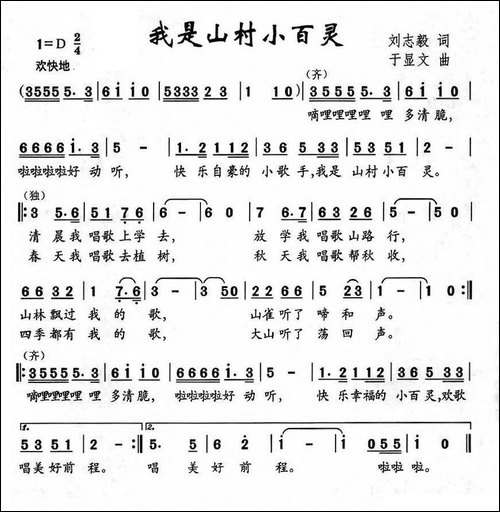 我是山村小百灵
1=D 2/4
欢快地
刘志毅 词
于显文 曲
(齐)
(3555 5·3 | 6i i0 | 5333 23 | 1 10) | 3555 5·3 | 6i i0 |
嘀哩哩哩哩 哩 多清脆,
6666 i·3 | 5 - | 1·2 112 | 3·6 35 | 6·3 216 | 5 - |
啦啦啦啦好 动 听, 快 乐自豪的 小歌 手,我是 山村小百 灵。
(独)
‖: 3 5·6 | 51 76 | 6 - | 6 0 | 7 6·7 | 63 26 | 5 - | 5 0 |
清 晨我 唱歌上学 去, 放 学我 唱歌山路 行,
春 天我 唱歌去植 树, 秋 天我 唱歌帮秋 收,
66 32 | 1 7·6 | 3 - | 3 350 | 22 12 | 5 23 | 1 - | 1 0 :‖
山林 飘过 我 的 歌, 山雀 听了 啼 和 声。
四季 都有 我 的 歌, 大山 听了 荡 回 声。
(齐)
‖: 3555 5·3 | 6i i0 | 6666 i·3 | 5 - | 1·2 112 | 3·6 35 |
嘀哩哩哩哩 哩 多清脆, 啦啦啦啦好 动听, 快 乐幸福的 小百 灵,欢歌
1. 2.
53 51 | 2 - :‖ 5 53 | 6 2 | i - | i - | 055 i0 ‖
唱美好前 程。 唱 美好 前 程。 啦啦 啦。